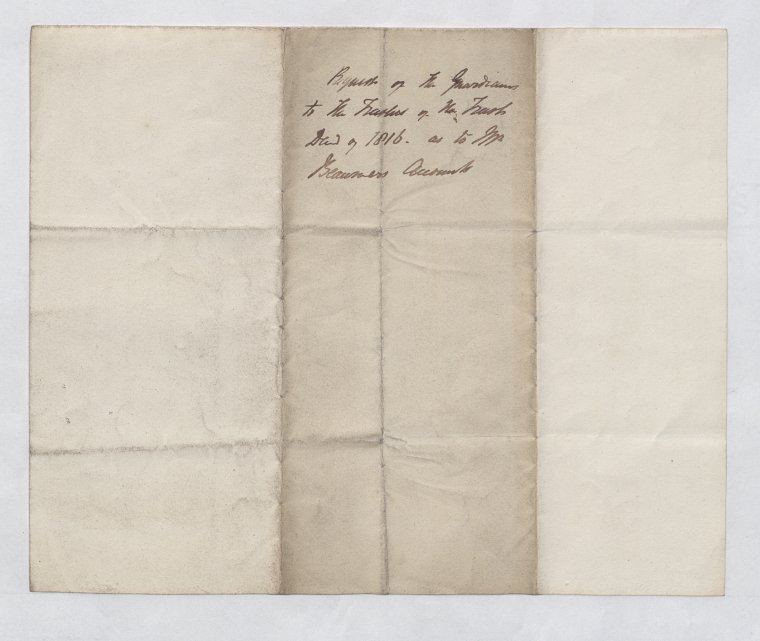 Request of the Guardians
to the Trustees of the Trust
Deed of 1816. as to Mr
Beaumers Accounts